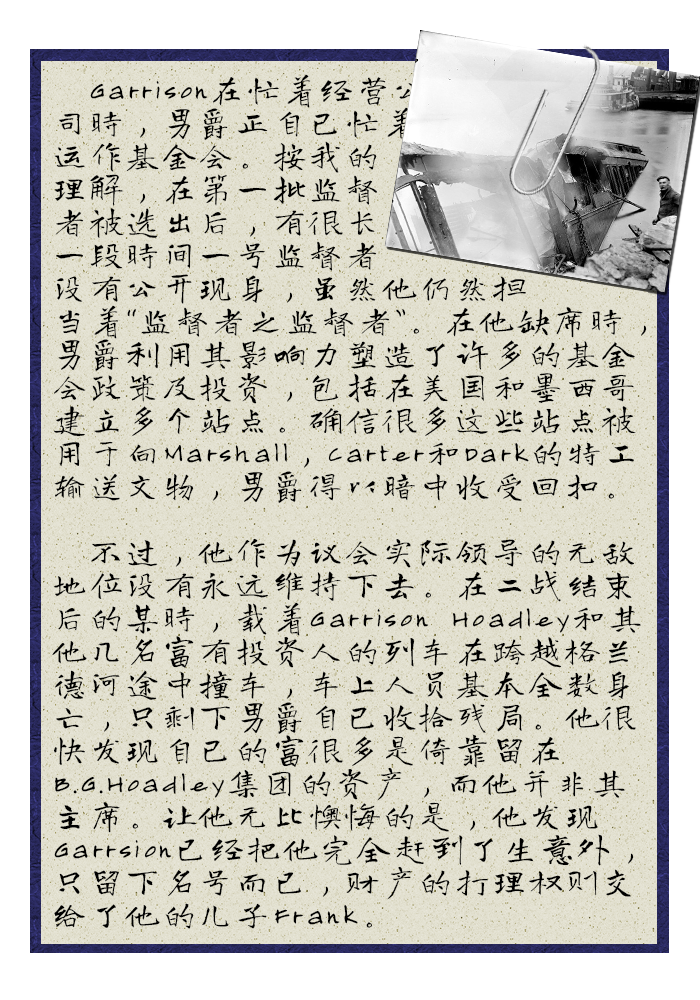 Garrison在忙着经营公
司時，男爵正自己忙着
运作基金会。按我的
理解，在第一批监督
者被选出后，有很长
一段時间一号监督者
没有公开现身，虽然他仍然担
当着“监督者之监督者”。在他缺席時，
男爵利用其影响力塑造了许多的基金
会政策及投资，包括在美国和墨西哥
建立多个站点。确信很多这些站点被
用于向Marshall，Carter和Dark的特工
输送文物，男爵得以暗中收受回扣。
不过，他作为议会实际领导的无敌
地位没有永远维持下去。在二战结束
后的某時，载着Garrison Hoadley和其
他几名富有投资人的列车在跨越格兰
德河途中撞车，车上人员基本全数身
亡，只剩下男爵自己收拾残局。他很
快发现自己的富很多是倚靠留在
B.G.Hoadley集团的资产，而他并非其
主席。让他无比懊悔的是，他发现
Garrsion已经把他完全赶到了生意外，
只留下名号而已，财产的打理权则交
给了他的儿子Frank。